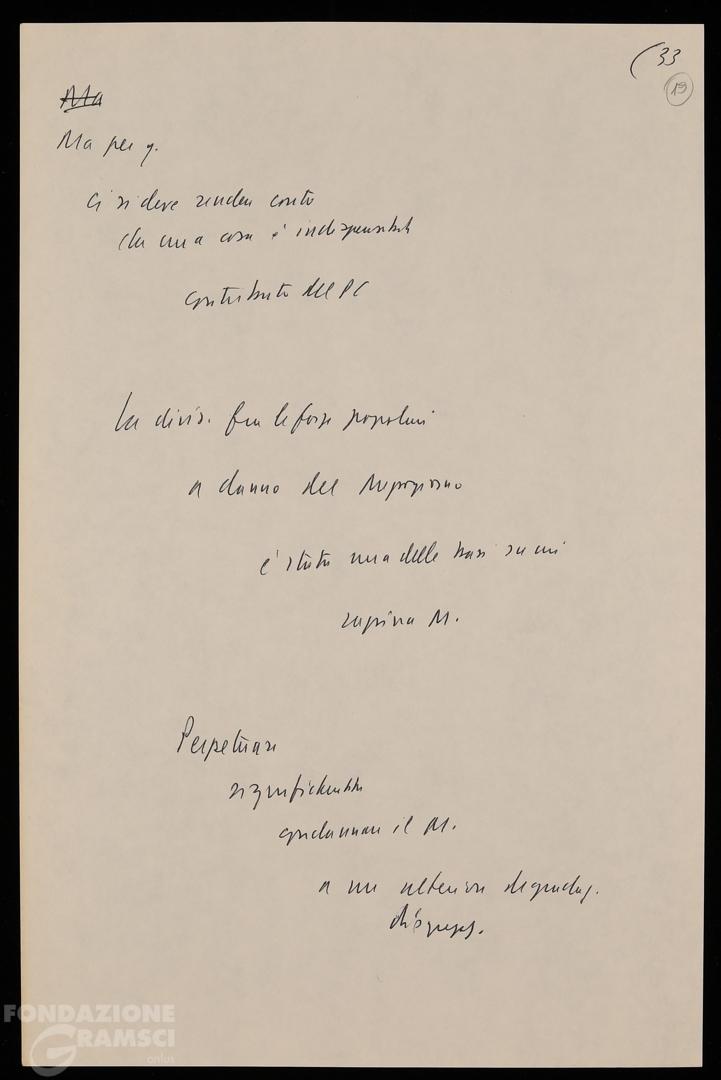 (33
19
Ma
Ma per q.
ci si deve render conto
che una cosa è indispensabile
contributo del PC
La divis. fra le forze popolari
a danno del Mezzogiorno
è stata una delle basi su cui
M.
Perpetuare
significherebbe
condannare il M.
a un ulteriore degradaz.
disgregaz.
FONDAZIONE
GRAMSCI
onlus